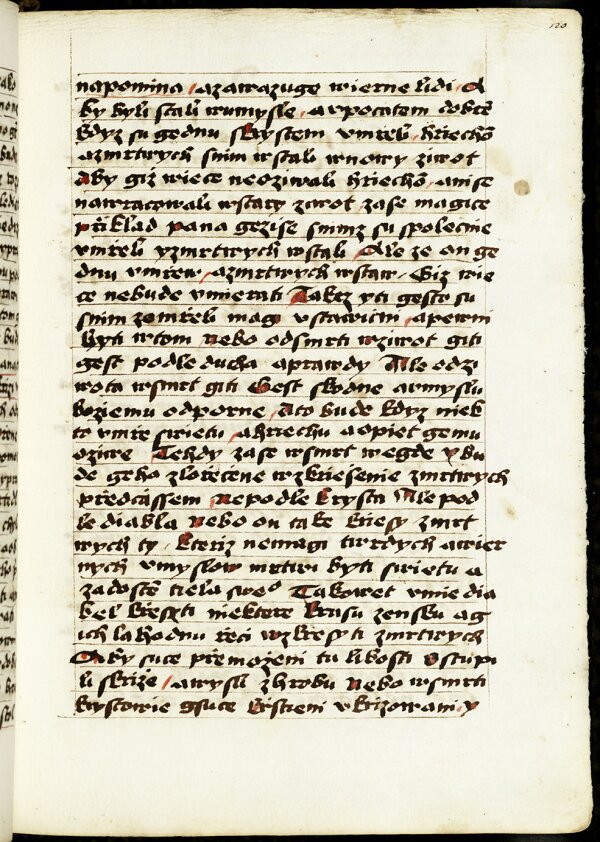 120
napomina / azawazuge wierne lidi / A
by byli stali wumysle / arpocatem dobre
kdyz su gednu skrystem vmreli hriechö
azmrtwych snim wstali wnowy ziwot
aby giz wiece neoziwali hriechö / anise
nawracowali wstary ziwot zase magice
přiklad pana gezise snimz su spolecnie
vmřeli yzmrtwych wstali / Ale ze on ge
dnu vmrew / azmrtwych wstaw / Giz wie
ce nebude vmierati Taktz yti gesto su
snim zemřeli magi vstawicni / apewni
byti wtom nebo odsmrti wziwot giti
gest podle ducha aprawdy Ale odzi
wota wsmrt giti Gest skodne aumyslu
boziemu odporne / Ato bude kdyz niek
to vmře swietu / ahriechu aopiet gemu
oziwe Tehdy zase wsmrt wegde ybu
de geho zlořecene wzkriesenie zmrtwych
předcassem Nepodle krysta Ale pod
le diabla Nebo on take kriesy zmrt
wych ty / kteriz nemagi twrdych awier
nych vmyslow mrtwi byti swietu a
zadostě tiela sweo Takowet vmie dia
bel křesyti niektere krasu zensku ag
ich lahodnu řeci wzkřesyti zmrtwych
Aby suce přemozeni tu libosti vstupi
li skrize / awysli zhrobu Nebo wsmrti
krystowie gsuce křstieni vkrizowani y